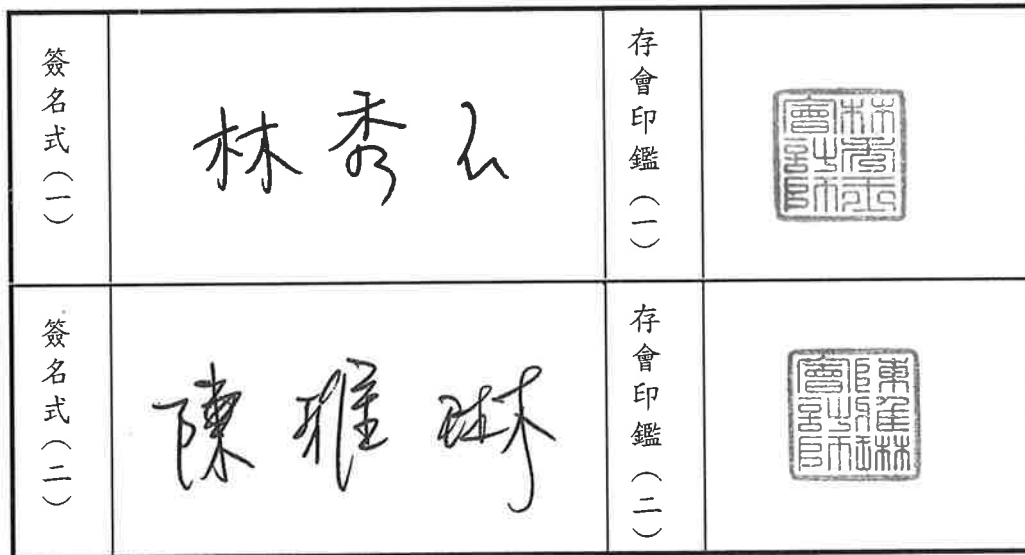 簽名式(一)
林秀玉
存會印鑑(一)
林秀玉
會計師
簽名式(二)
陳雅琳
存會印鑑(二)
陳雅琳
會計師